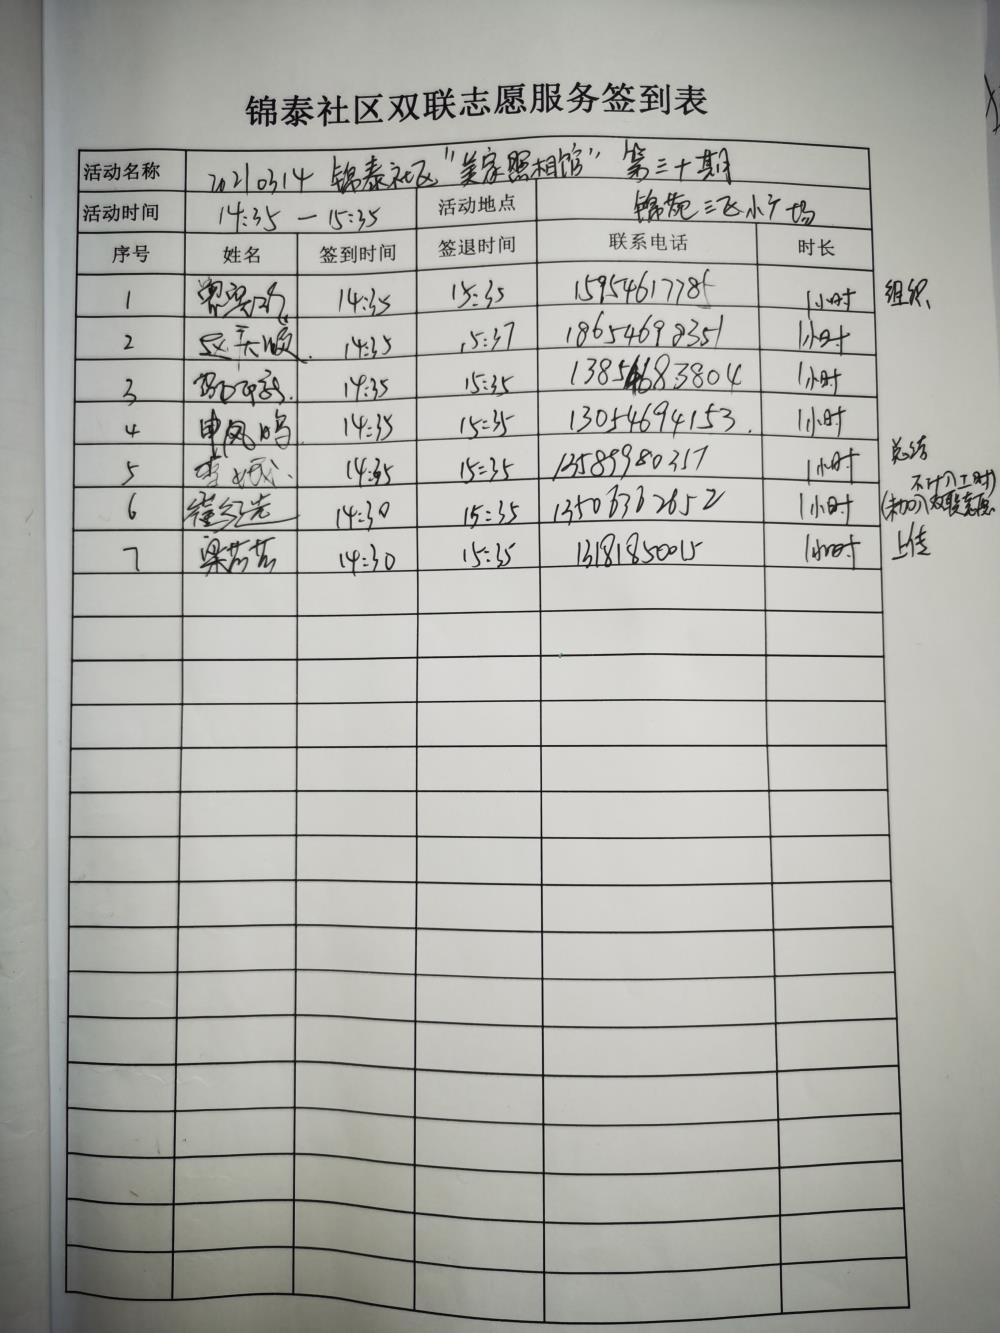 锦泰社区双联志愿服务签到表
活动名称 20210314 锦泰社区"美家照相馆" 第三十期
活动时间 14:35 — 15:35 活动地点 锦苑三区小广场
序号 姓名 签到时间 签退时间 联系电话 时长
1 14:35 15:35 1小时 组织
2 14:35 15:37 18654698351 1小时
3 14:35 15:35 13854683804 1小时
4 申凤鸣 14:35 15:35 13054694153 1小时
5 14:35 15:35 13589980317 1小时 总结
不计入工时
6 14:30 15:35 13506362652 1小时 (未加入双联志愿)
7 梁芸芸 14:30 15:35 13181850015 1小时 上传